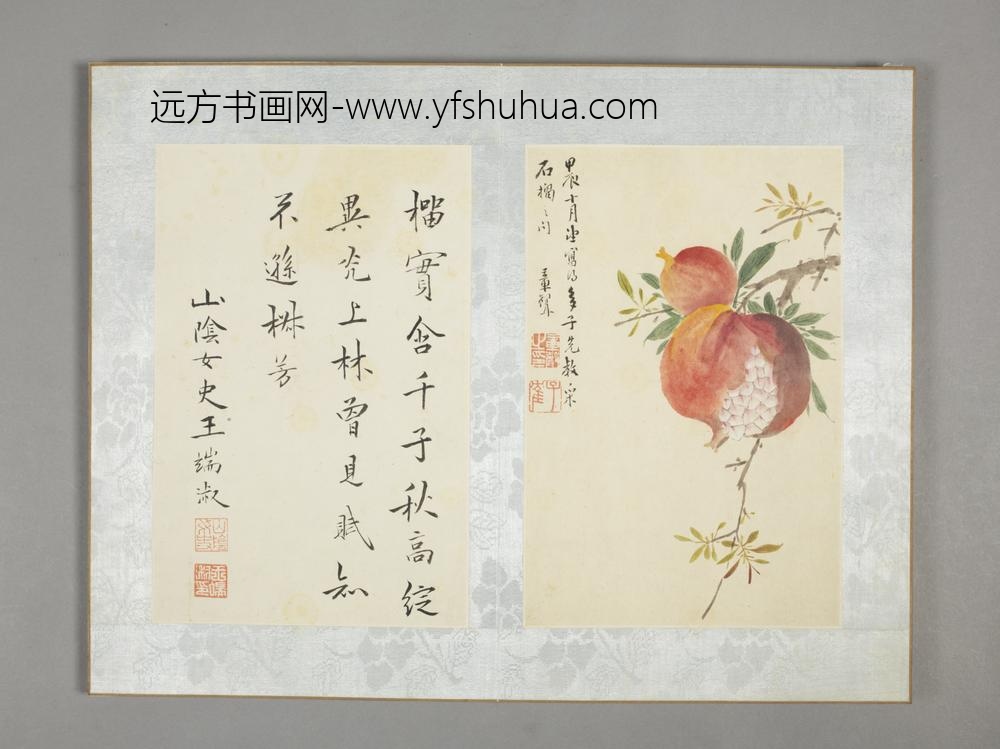 远方书画网-www.yfshuhua.com
甲辰十月望寫為多子先教采
石榴之図
王軍聚
榴實含千子秋高綻
異光上林曾見賦知
不遜椒芳
山陰女史王端淑